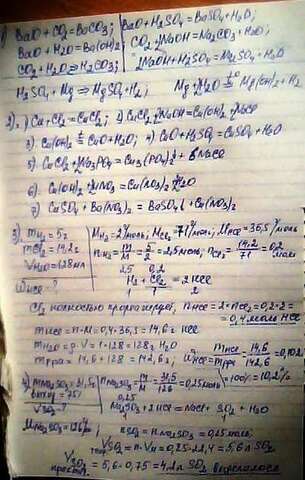 1) BaO + CO2 = BaCO3; BaO + H2SO4 = BaSO4 + H2O;
BaO + H2O = Ba(OH)2; CO2 + NaOH = Na2CO3 + H2O;
CO2 + H2O = H2CO3; 2NaOH + H2SO4 = Na2SO4 + H2O
H2SO4 + Mg = MgSO4 + H2; Mg + H2O = Mg(OH)2 + H2
2). 1) Cu + Cl2 = CuCl2; 2) CuCl2 + NaOH = Cu(OH)2 + NaCl
3) Cu(OH)2 = CuO + H2O; 4) CuO + H2SO4 = CuSO4 + H2O
5) CuCl2 + Na3PO4 = Cu3(PO4)2↓ + 6 NaCl
6) Cu(OH)2 + HNO3 = Cu(NO3)2 + H2O
7) CuSO4 + Ba(NO3)2 = BaSO4↓ + Cu(NO3)2
3) mH2 = 5г MH2 = 2г/моль; MCl2 = 71г/моль; MHCl = 36,5 г/моль
mCl2 = 14,2г nH2 = m/M = 5/2 = 2,5моль; nCl2 = 14,2/71 = 0,2 моль
VH2O = 128мл
2,5 0,2
WHCl - ? H2 + Cl2 = 2HCl
1 1 2
Cl2 полностью прореагирует, nHCl = 2·nCl2 = 0,2·2 =
= 0,4 моль HCl
mHCl = n·M = 0,4·36,5 = 14,6 г HCl
mH2O = ρ·V = 1·128 = 128г H2O
mр-ра = 14,6 + 128 = 142,6 г; WHCl = mHCl/mр-ра = 14,6/142,6 = 0,102
·100% = 10,2%
4) mNa2SO3 = 31,5г nNa2SO3 = m/M = 31,5/126 = 0,25моль
0,25
VSO2 - ? Na2SO3 + 2HCl = NaCl + SO2 + H2O
MNa2SO3 = 126г/моль; nSO2 = nNa2SO3 = 0,25моль;
VSO2 = n·Vm = 0,25·22,4 = 5,6л SO2
VSO2 практ. = 5,6·0,75 = 4,2л SO2 выделилось